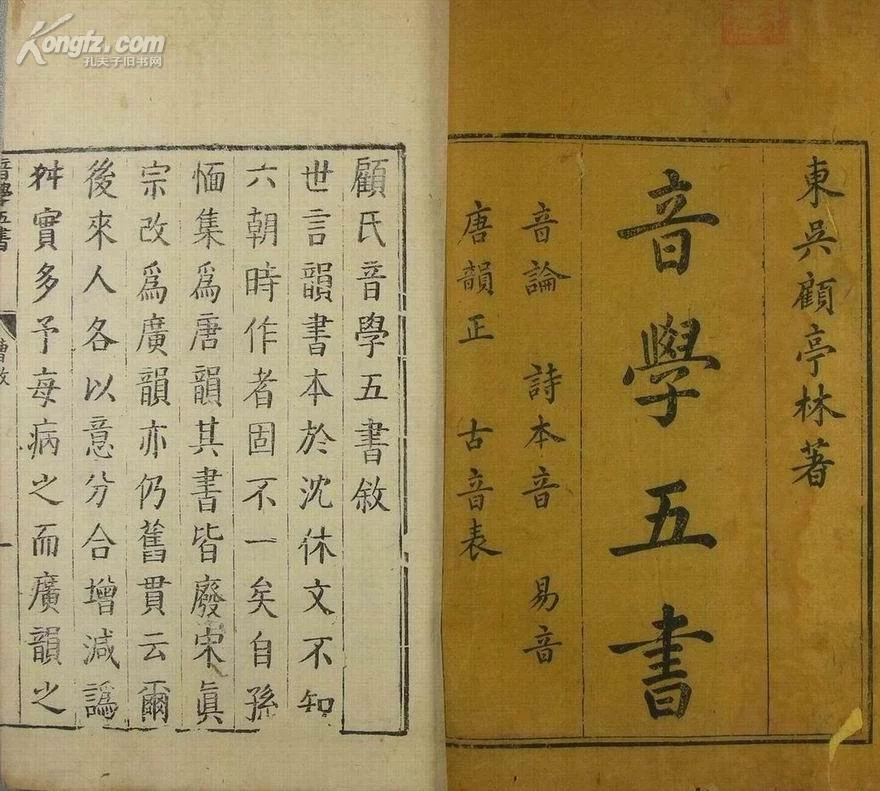 東吳顧亭林著
音學五書
音論 詩本音 易音
唐韻正 古音表
顧氏音學五書敘
世言韻書本於沈休文不知
六朝時作者固不一矣自孫
愐集爲唐韻其書皆廢宋眞
宗改爲廣韻亦仍舊貫云爾
後來人各以意分合增減譌
舛實多予每病之而廣韻之
音學五書
曹敘
一
Kongfz.com
孔夫子旧书网